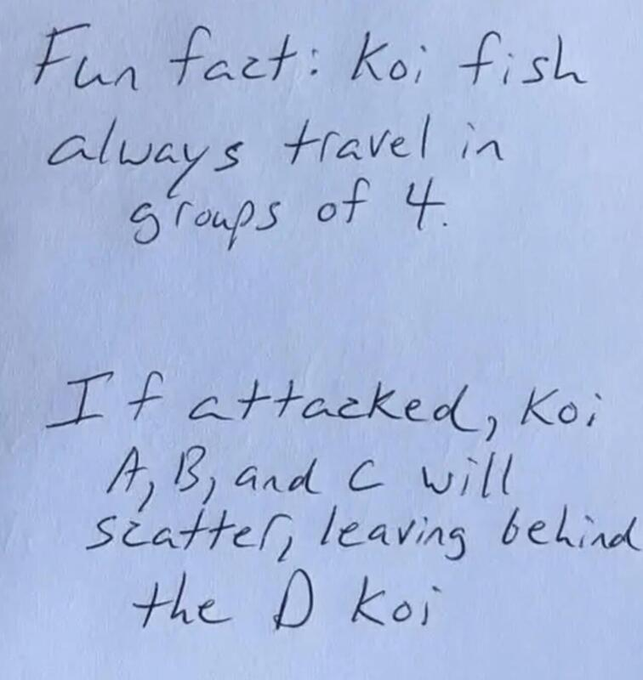 Fun fact: Koi fish
always travel in
groups of 4.
If attacked, Koi
A, B, and C will
scatter, leaving behind
the D Koi